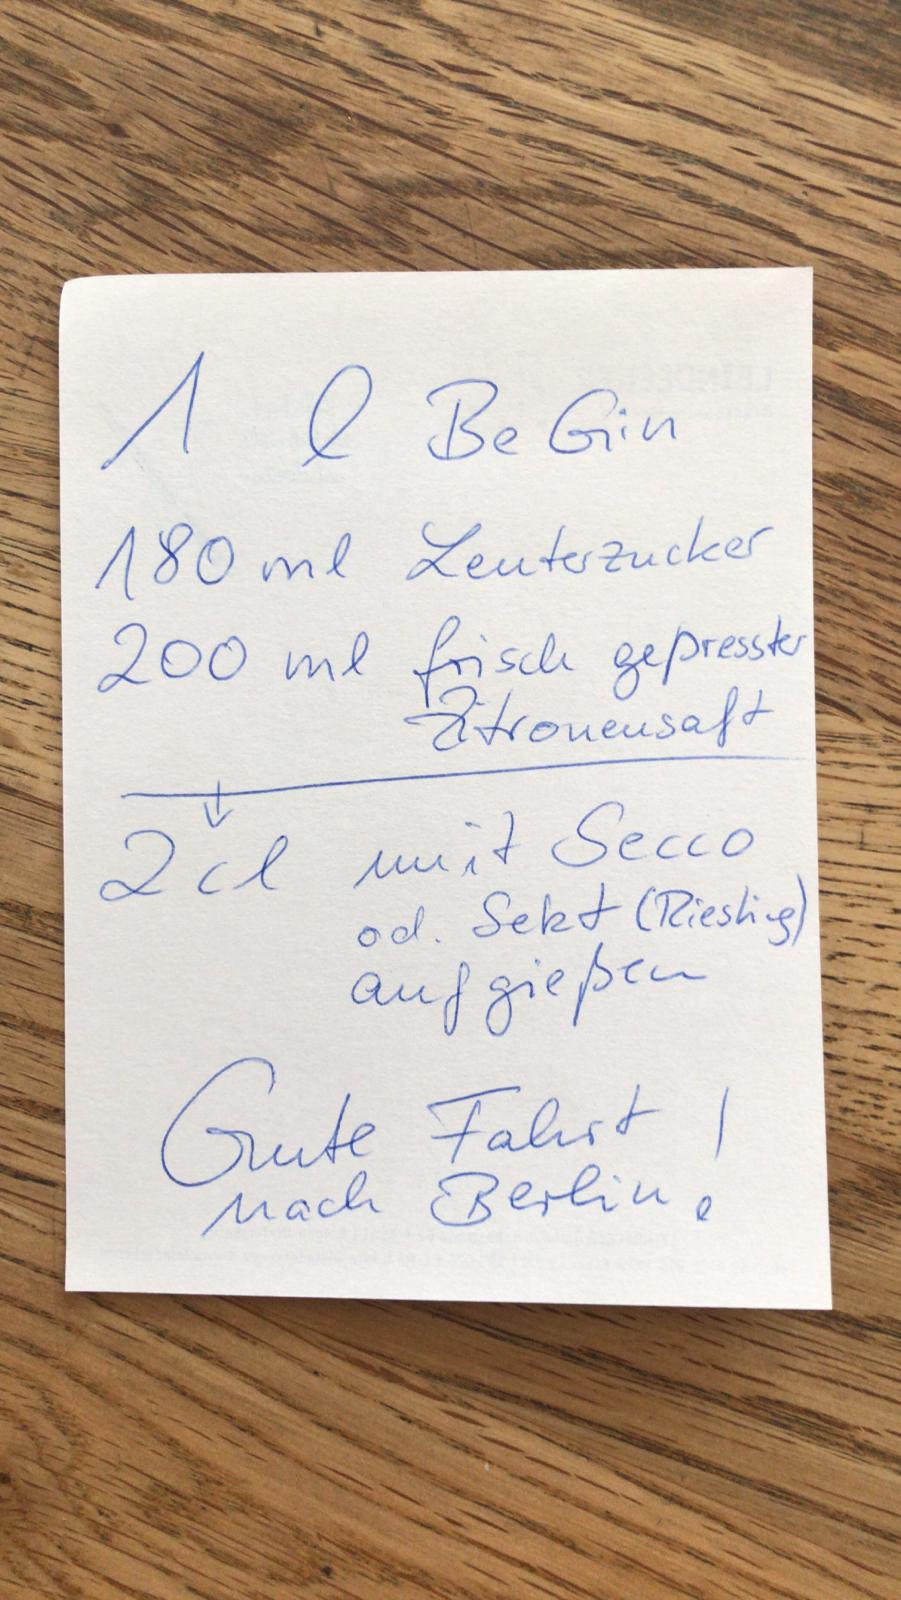 1 l BeGin
180 ml Leuterzucker
200 ml frisch gepresster
Zitronensaft
2 cl mit Secco
od. Sekt (Riesling)
aufgießen
Gute Fahrt !
nach Berlin.